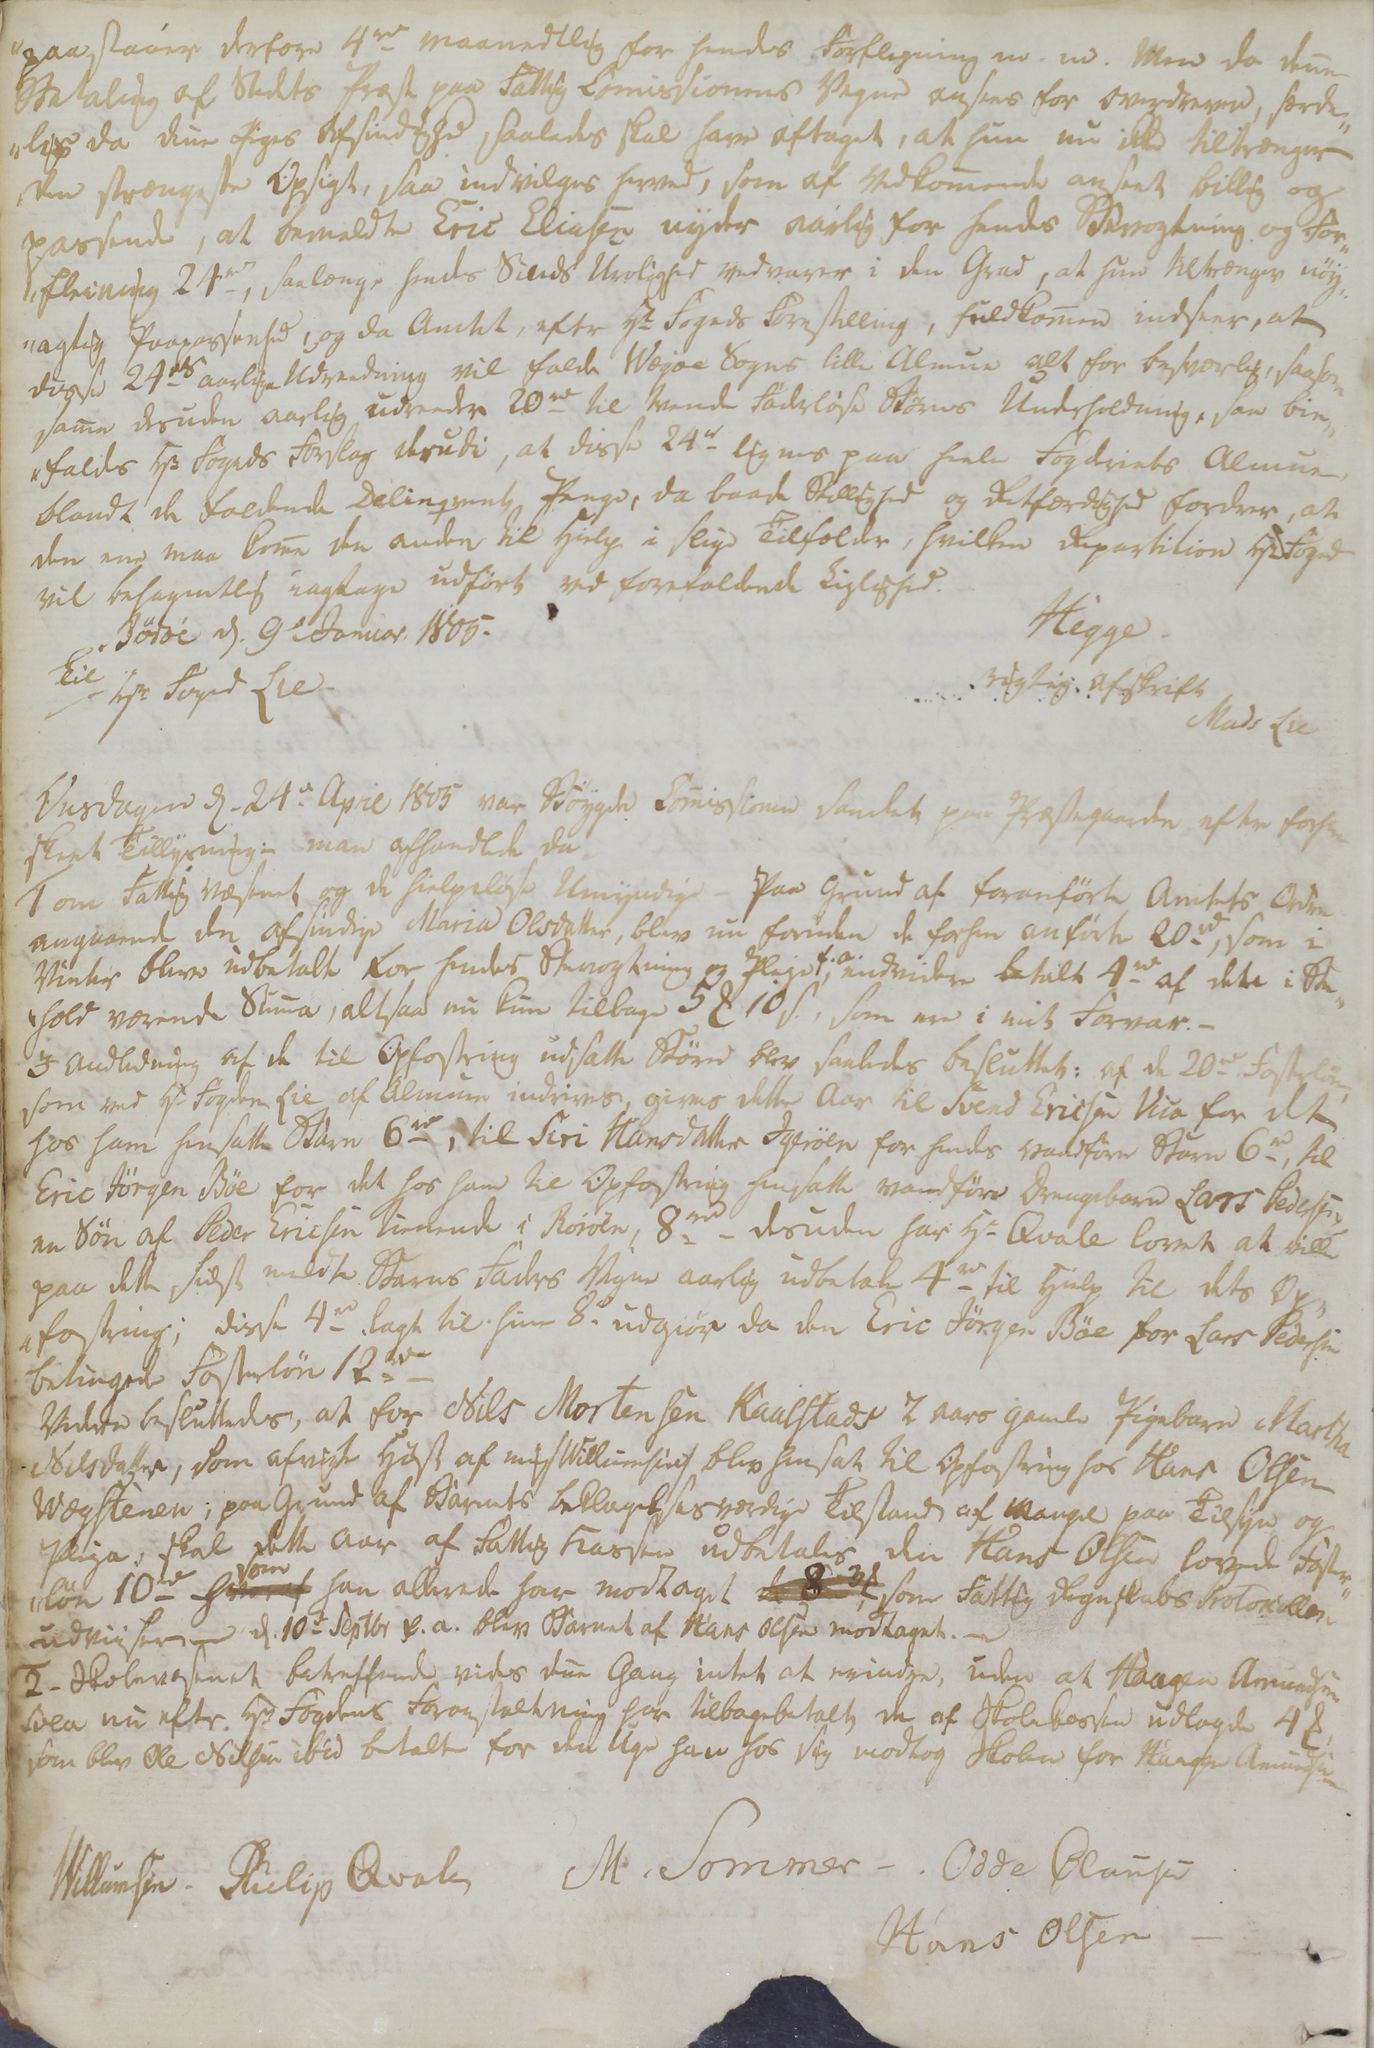 "paastaaer derfore 4 rd maanedtlig for hendes Forflegning m. m. Men da denne
Betaling af Stedets Præst paa Fattig Comissionens Vegne ansees for overdreven, særde"
"lig da denne Piges Afsindighed saaledes skal have aftaget, at hun nu ikke tiltrænger
den strængeste Opsigt, saa indvilges herved, som af Vedkommende anseet billig og
passende, at bemeldte Eric Eliasen nyder aarlig for hendes Bevogtning og For"
"fleining 24 rd, saalænge hendes Sinds Urolighed vedvarer i den Grad, at hun tiltrænger nöy"
"agtig Paapassenhed, og da Amtet, efter Hr Fogeds Forestilling, fuldkommen indseer, at
disse 24 rds aarlige Udreedning vil falde Wægöe Sogns lille Almue alt for besværlig, saasom
samme desuden aarlig udreeder 20 rd til tvende Faderløse Börns Underholdning, saa bie"
"falds Hr Fogeds Forslag derudi, at disse 24 rd lignes paa heele Fogderiets Almue
blandt de faldende Delinqventz Penge, da baade Billighed og Retfærdighed fordrer, at
den ene maa komme den anden til Hielp i slige Tilfælder, hvilken Repartition Hr Foged
vil behagentlig iagtage udfört ved forefaldende Leylighed.
Bödöe d. 9de Januar 1805. Hegge.
Til Hr Foged Lie
rigtig Afskrift
Mads Lie
Onsdagen d. 24de April 1805 var Böygde Commissionen samlet paa Præstegaarden efter forhen
skeet Tillysning. man afhandlede da
1 om Fattig Væsenet og de hielpelöse Umyndige - Paa Grund af foranförte Amtets Ordre
angaaende den afsindige Maria Olsdatter, blev nu foruden de forhen anförte 20 rd, som i
Vinter bleve udbetalte for hendes Bevogtning og Pleje f. a., endvidere betalt 4 rd af dete i Be"
"hold værende Summa, altsaa nu kun tilbage 5 ₰ 10 s., som ere i mit Forvar. -
I Andledning af de til Opfostring udsatte Börn blev saaledes besluttet: af de 20 rd Fosterlön,
som ved Hr Fogden Lie af Almuen indrives, gives dette Aar til Svend Ericsen Viia for det
hos ham hensatte Barn 6 rd, til Siri Hansdatter Igeröen for hendes vandföre Barn 6 rd, til
Eric Jörgen Böe for det hos ham til Opfostring hensatte vandföre Drengebarn Lars Pedersen
en Sön af Peder Ericsen tienende i Roröen, 8 rd - desuden har Hr Qvale lovet at ville
paa dette sidst meldte Barns Faders Vegne aarlig udbetale 4 rd til Hielp til dets Op"
"fostring; disse 4 rd lagt til hine 8 udgiör da den Eric Jörgen Böe for Lars Pedersen
betingede Fosterlön 12 rd
Videre besluttedes, at for Nils Mortensen Kaalstads 2 aars gamle Pigebarn Martha
Nilsdatter, som afvigte Höst af mig (Willumsen) blev hensat til Opfostring hos Hans Olsen
Wægstenen, paa Grund af Barnets beklagelsesværdige Tilstand af Mangel paa Tilsyn og
Pleje, skal dette Aar af Fattig Kassen udbetales den Hans Olsen lovede Foster"
"lön 10 rd som han allerede har modtaget som Fattig Regnskabs Protocollen
udviser d. 10de Septbr f. a. blev Barnet af Hans Olsen modtaget. -
2 - Skolevæsenet betreffende vides denne Gang intet at erindre, uden at Haagen Amundsen
Svea nu efter Hr Fogdens Foranstaltning har tilbagebetalt de af Skolekassen udlagde 4 ₰,
som blev Ole Nilsen ibid betalte for den Uge han hos sig modtog Skolen for Haagen Amundsen
Willumsen. Philip Qvale M. Sommer - Odde Clausen
Hans Olsen -